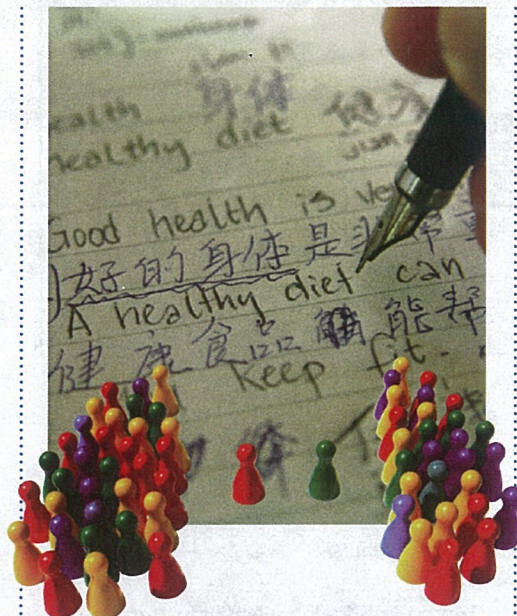 身体
healthy diet
Good health is
好的身体是非常重
A healthy diet can
健康食品 能帮
keep fit.